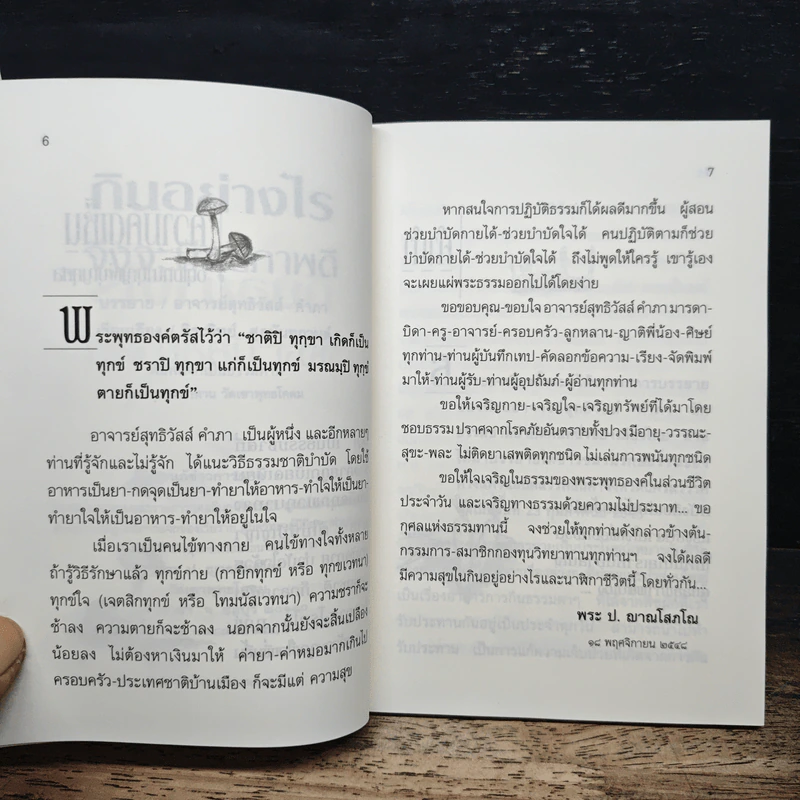 6
พระพุทธองค์ตรัสไว้ว่า “ชาติปิ ทุกฺขา เกิดก็เป็น
ทุกข์ ชราปิ ทุกฺขา แก่ก็เป็นทุกข์ มรณมฺปิ ทุกฺขํ
ตายก็เป็นทุกข์”
อาจารย์สุทธิวัสส์ คำภา เป็นผู้หนึ่ง และอีกหลายๆ
ท่านที่รู้จักและไม่รู้จัก ได้แนะวิธีธรรมชาติบำบัด โดยใช้
อาหารเป็นยา-กดจุดเป็นยา-ทำยาให้อาหาร-ทำใจให้เป็นยา-
ทำยาใจให้เป็นอาหาร-ทำยาให้อยู่ในใจ
เมื่อเราเป็นคนไข้ทางกาย คนไข้ทางใจทั้งหลาย
ถ้ารู้วิธีรักษาแล้ว ทุกข์กาย (กายิกทุกข์ หรือ ทุกขเวทนา)
ทุกข์ใจ (เจตสิกทุกข์ หรือ โทมนัสเวทนา) ความชราก็จะ
ช้าลง ความตายก็จะช้าลง นอกจากนั้นยังจะสิ้นเปลือง
น้อยลง ไม่ต้องหาเงินมาให้ ค่ายา-ค่าหมอมากเกินไป
ครอบครัว-ประเทศชาติบ้านเมือง ก็จะมีแต่ ความสุข
7
หากสนใจการปฏิบัติธรรมก็ได้ผลดีมากขึ้น ผู้สอน
ช่วยบำบัดกายได้-ช่วยบำบัดใจได้ คนปฏิบัติตามก็ช่วย
บำบัดกายได้-ช่วยบำบัดใจได้ ถึงไม่พูดให้ใครรู้ เขารู้เอง
จะเผยแผ่พระธรรมออกไปได้โดยง่าย
ขอขอบคุณ-ขอบใจ อาจารย์สุทธิวัสส์ คำภา มารดา-
บิดา-ครู-อาจารย์-ครอบครัว-ลูกหลาน-ญาติพี่น้อง-ศิษย์
ทุกท่าน-ท่านผู้บันทึกเทป-คัดลอกข้อความ-เรียง-จัดพิมพ์
มาให้-ท่านผู้รับ-ท่านผู้อุปถัมภ์-ผู้อ่านทุกท่าน
ขอให้เจริญกาย-เจริญใจ-เจริญทรัพย์ที่ได้มาโดย
ชอบธรรม ปราศจากโรคภัยอันตรายทั้งปวง มีอายุ-วรรณะ-
สุขะ-พละ ไม่ติดยาเสพติดทุกชนิด ไม่เล่นการพนันทุกชนิด
ขอให้ใจเจริญในธรรมของพระพุทธองค์ในส่วนชีวิต
ประจำวัน และเจริญทางธรรมด้วยความไม่ประมาท... ขอ
กุศลแห่งธรรมทานนี้ จงช่วยให้ทุกท่านดังกล่าวข้างต้น-
กรรมการ-สมาชิกกองทุนวิทยาทานทุกท่านฯ จงได้ผลดี
มีความสุขในกินอยู่อย่างไรและนาฬิกาชีวิตนี้ โดยทั่วกัน...
พระ ป. ญาณโสภโณ
๑๘ พฤศจิกายน ๒๕๔๘